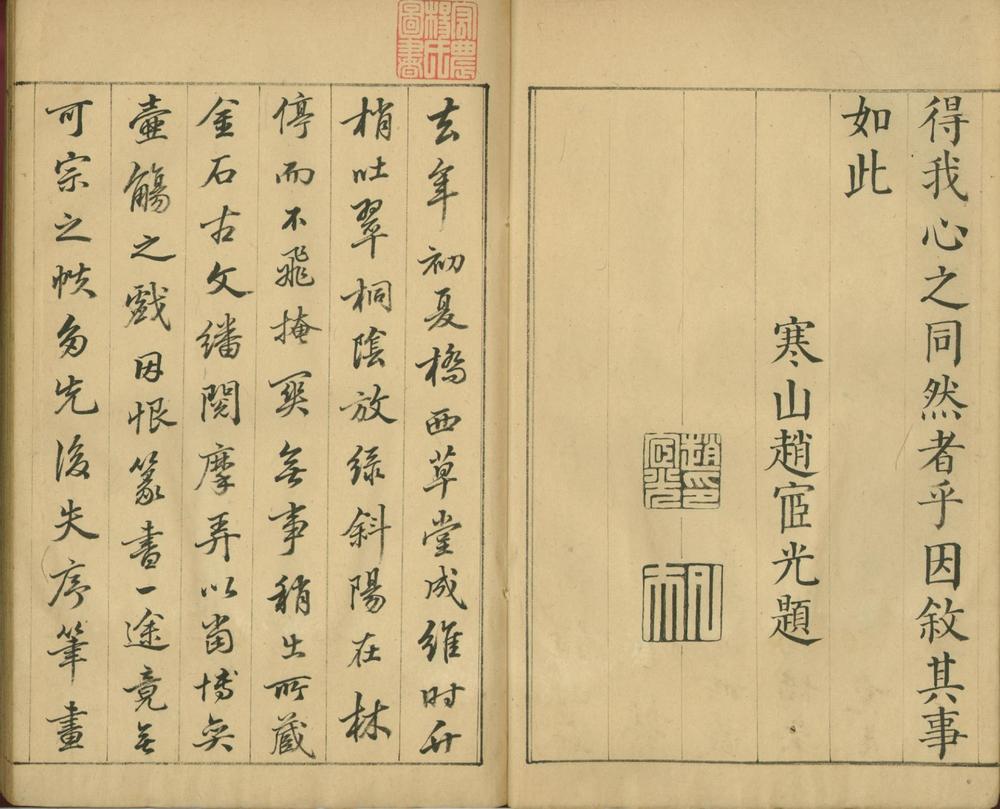 得我心之同然者乎因敘其事
如此
寒山趙宧光題
趙印宧光
凡夫
宏農楊氏圖書
去年初夏橋西草堂成維时
梢吐翠桐陰放綠斜陽在林
停而不飛掩関無事稍出所藏
金石古文繙閱摩弄以當博奕
壺觴之戲因恨篆書一途竟無
可宗之帙多先後失序筆畫